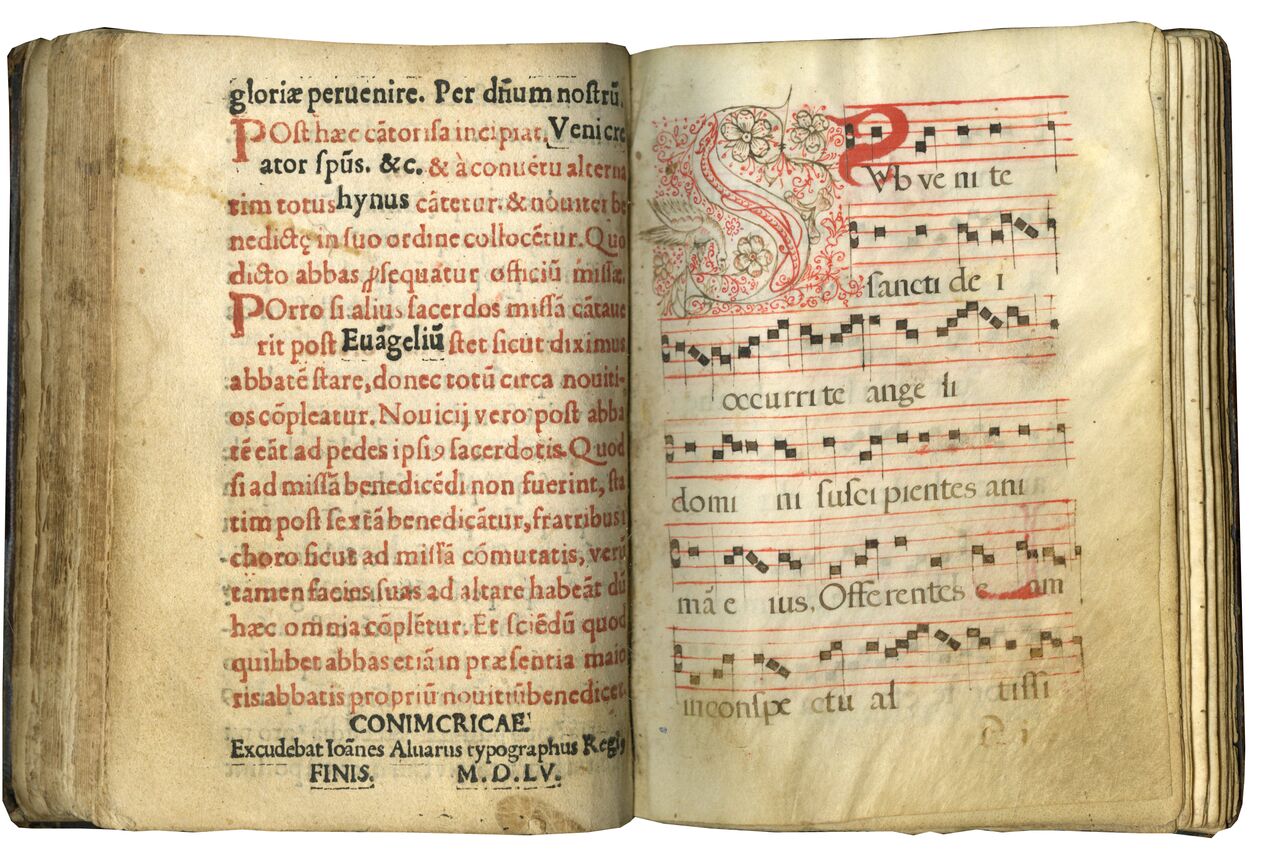 gloriæ peruenire. Per dn̄um nostrū.
POst hæc cātor isa incipiat, Veni cre
ator sp̄us. &c. & à conuētu alterna
tim totus hynus cātetur. & nouitei be
nedictę in suo ordine collocētur. Quo
dicto abbas ꝓsequatur officiū missæ.
POrro si alius sacerdos missā cātaue
rit post Euāgeliū stet sicut diximus
abbatē stare, donec totū circa nouiti-
os cōpleatur. Nouicij vero post abba
tē eāt ad pedes ipsiꝰ sacerdotis. Quod
si ad missā benedicēdi non fuerint, sta
tim post sextā benedicātur, fratribus i
choro sicut ad missā cōmutatis, verū
tamen facies suas ad altare habeāt dū
hæc omnia cōplētur. Et sciēdū quod
quilibet abbas etiā in præsentia maio
ris abbatis propriū nouitiū benedicet.
CONIMCRICAE.
Excudebat Ioānes Aluarus typographus Regiꝰ
FINIS. M.D.LV.
SVb ve ni te
sancti de i
occurri te ange li
domi ni susci pientes ani
mā e ius, Offe rentes e am
in conspe ctu al tissi